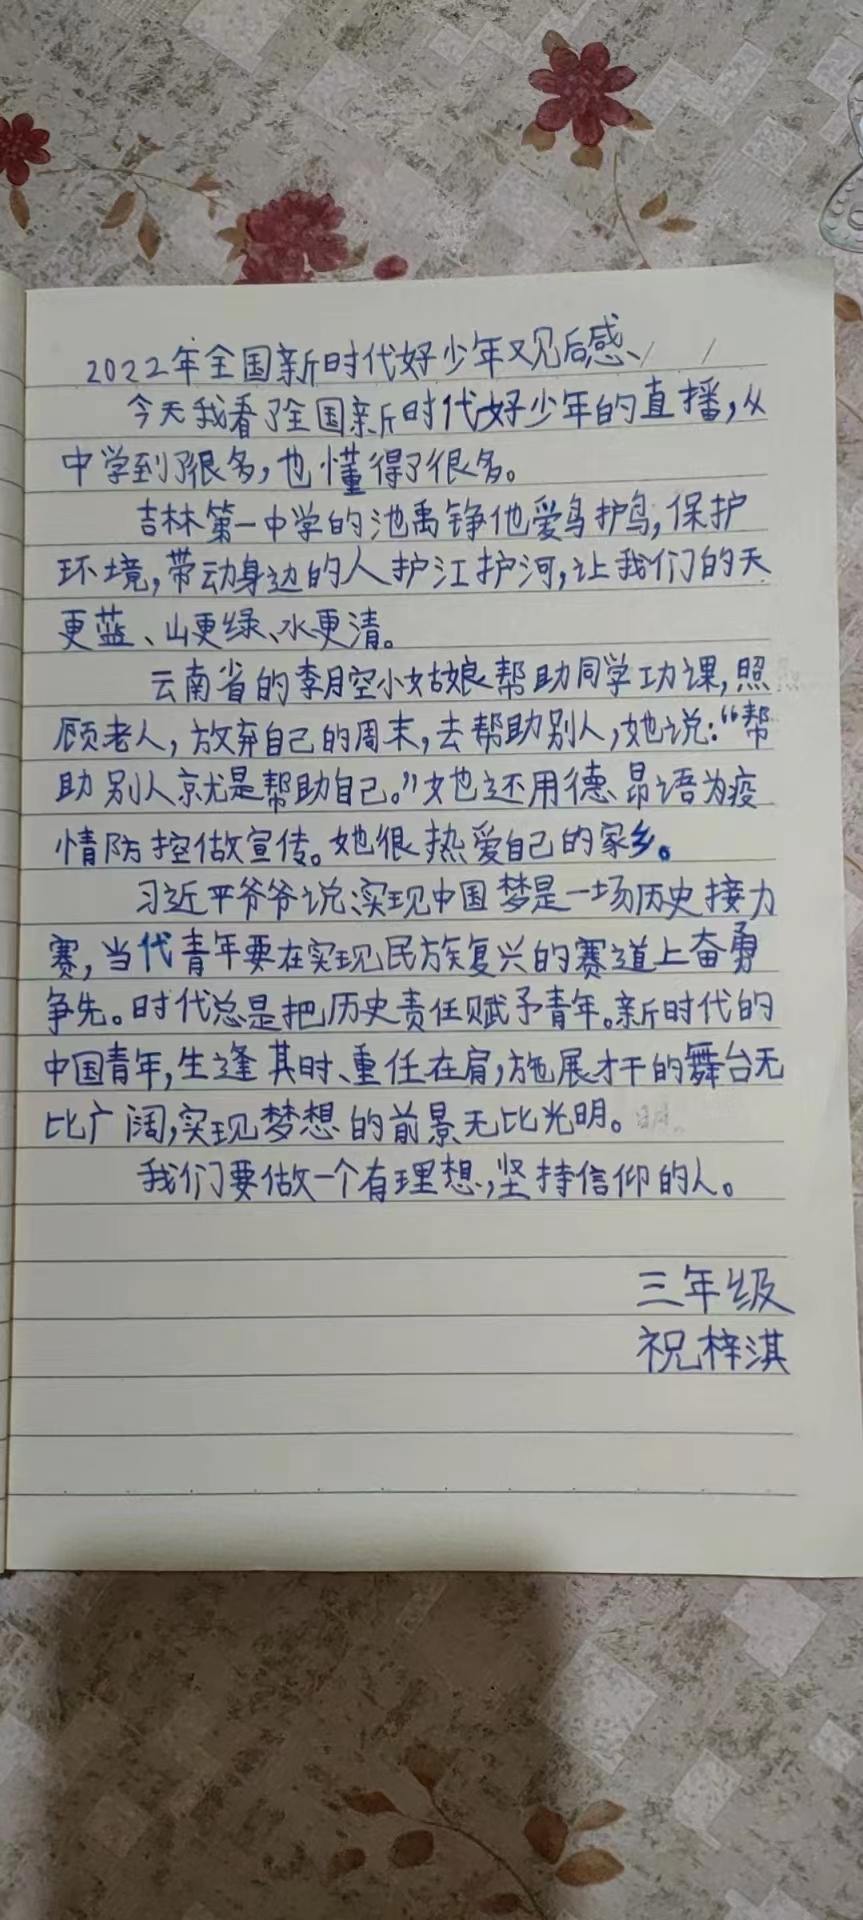 2022年全国新时代好少年观后感
今天我看了全国新时代好少年的直播,从
中学到了很多,也懂得了很多。
吉林第一中学的池禹铮他爱鸟护鸟,保护
环境,带动身边的人护江护河,让我们的天
更蓝、山更绿、水更清。
云南省的李月空小姑娘帮助同学功课,照
顾老人,放弃自己的周末,去帮助别人,她说:“帮
助别人就是帮助自己。”她还用德昂语为疫
情防控做宣传。她很热爱自己的家乡。
习近平爷爷说实现中国梦是一场历史接力
赛,当代青年要在实现民族复兴的赛道上奋勇
争先。时代总是把历史责任赋予青年。新时代的
中国青年,生逢其时、重任在肩,施展才干的舞台无
比广阔,实现梦想的前景无比光明。
我们要做一个有理想,坚持信仰的人。
三年级
祝梓淇